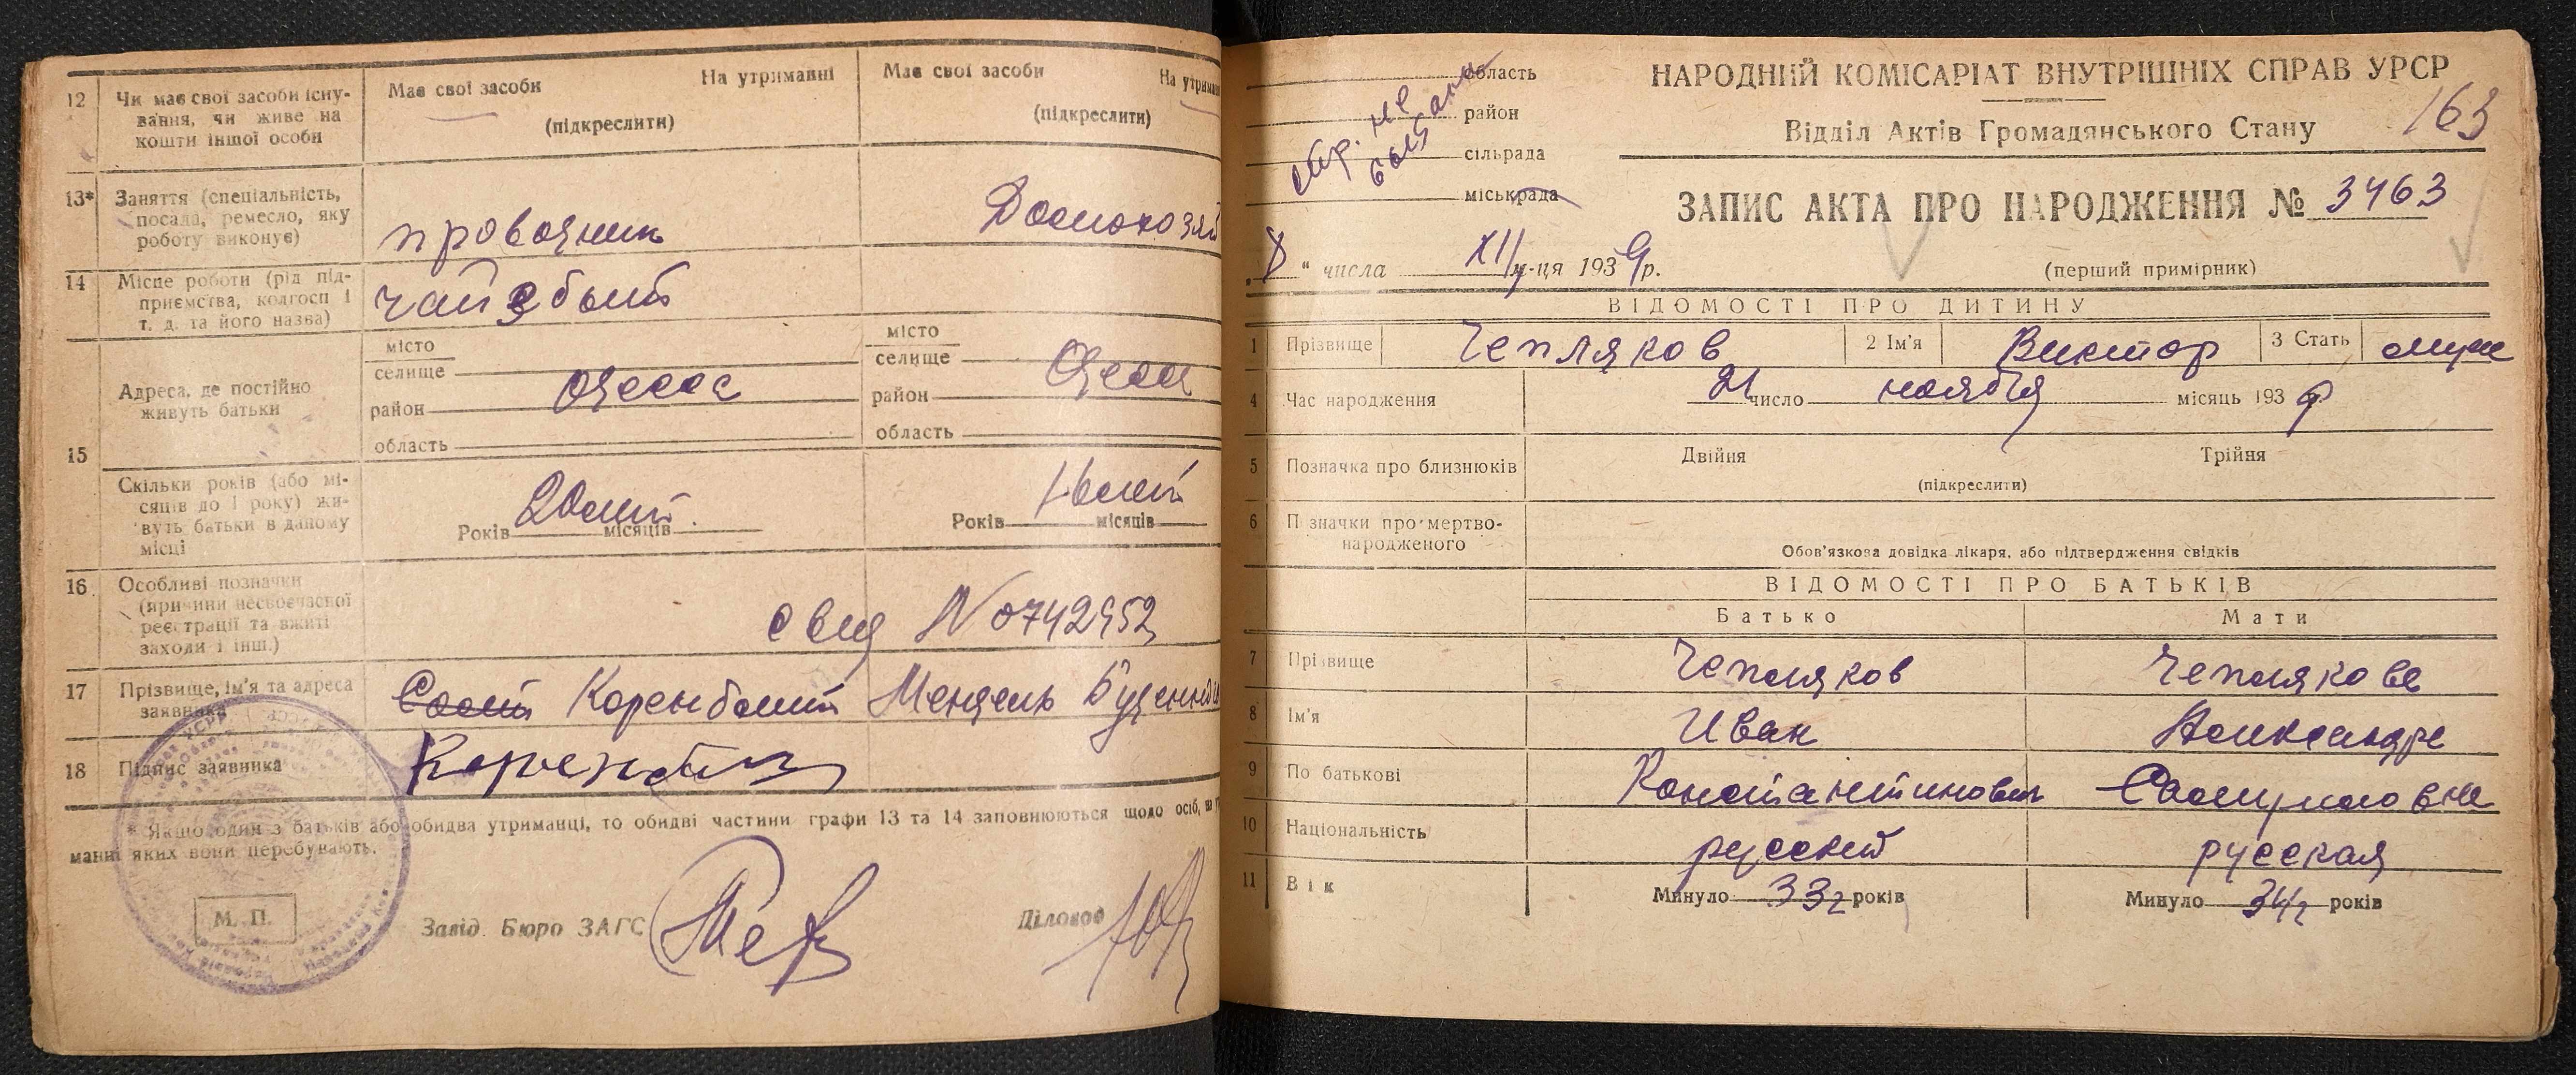 12 Чи має свої засоби існу-
вання, чи живе на
кошти іншої особи
Має свої засоби На утриманні
(підкреслити)
Має свої засоби На утриман
(підкреслити)
13* Заняття (спеціальність,
посада, ремесло, яку
роботу виконує)
проводник
Домохозяй
14 Місце роботи (рід під-
приємства, колгосп і
т. д. та його назва)
15 Адреса, де постійно
живуть батьки
місто
селище
район
область
Одесса
місто
селище
район
область
Одесса
Скільки років (або мі-
сяців до 1 року) жи-
вуть батьки в даному
місці
Років 20 лет місяців
Років місяців
16 Особливі позначки
(причини несвоєчасної
реєстрації та вжиті
заходи і інш.)
свид № 0742952
17 Прізвище, ім'я та адреса
заявника
Коренблит Мендель
18 Підпис заявника
* Якщо один з батьків або обидва утриманці, то обидві частини графи 13 та 14 заповнюються щодо осіб, на
манні яких вони перебувають.
М. П.
Завід. Бюро ЗАГС
Діловод
область
район
сільрада
міськрада
НАРОДНИЙ КОМІСАРІАТ ВНУТРІШНІХ СПРАВ УРСР
163
Відділ Актів Громадянського Стану
ЗАПИС АКТА ПРО НАРОДЖЕННЯ № 3463
" числа XII м-ця 1939 р.
(перший примірник)
ВІДОМОСТІ ПРО ДИТИНУ
1 Прізвище Чепляков 2 Ім'я Виктор 3 Стать муж
4 Час народження 21 число ноября місяць 1939
5 Позначка про близнюків Двійня Трійня
(підкреслити)
6 Позначки про мертво-
народженого
Обов'язкова довідка лікаря, або підтвердження свідків
ВІДОМОСТІ ПРО БАТЬКІВ
Батько Мати
7 Прізвище Чепляков Чеплякова
8 Ім'я Иван Александра
9 По батькові Константинович Самуиловна
10 Національність русский русская
11 Вік Минуло 33 г років Минуло 34 г років